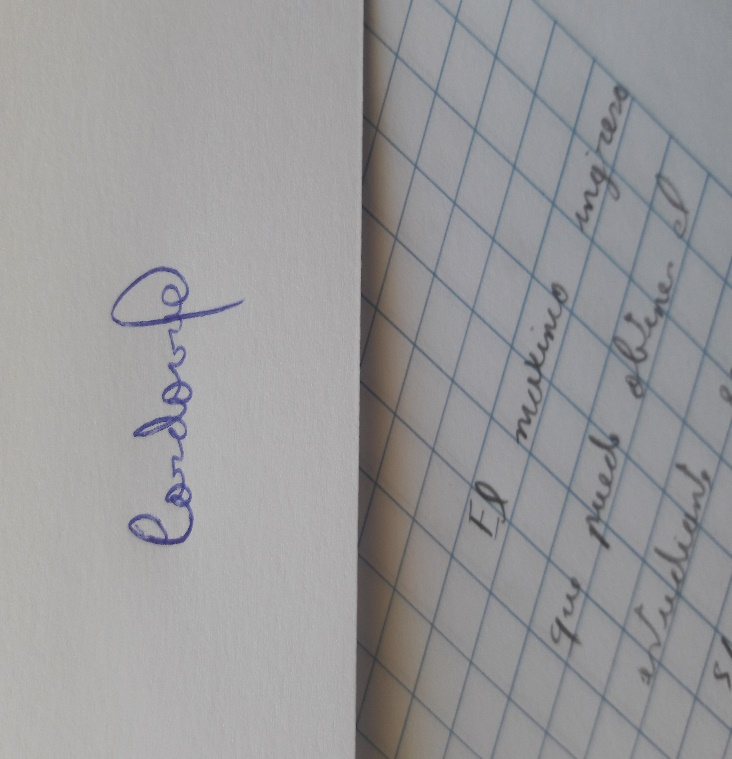 Cordova
El maximo ingreso
que puede obtener el
estudiante